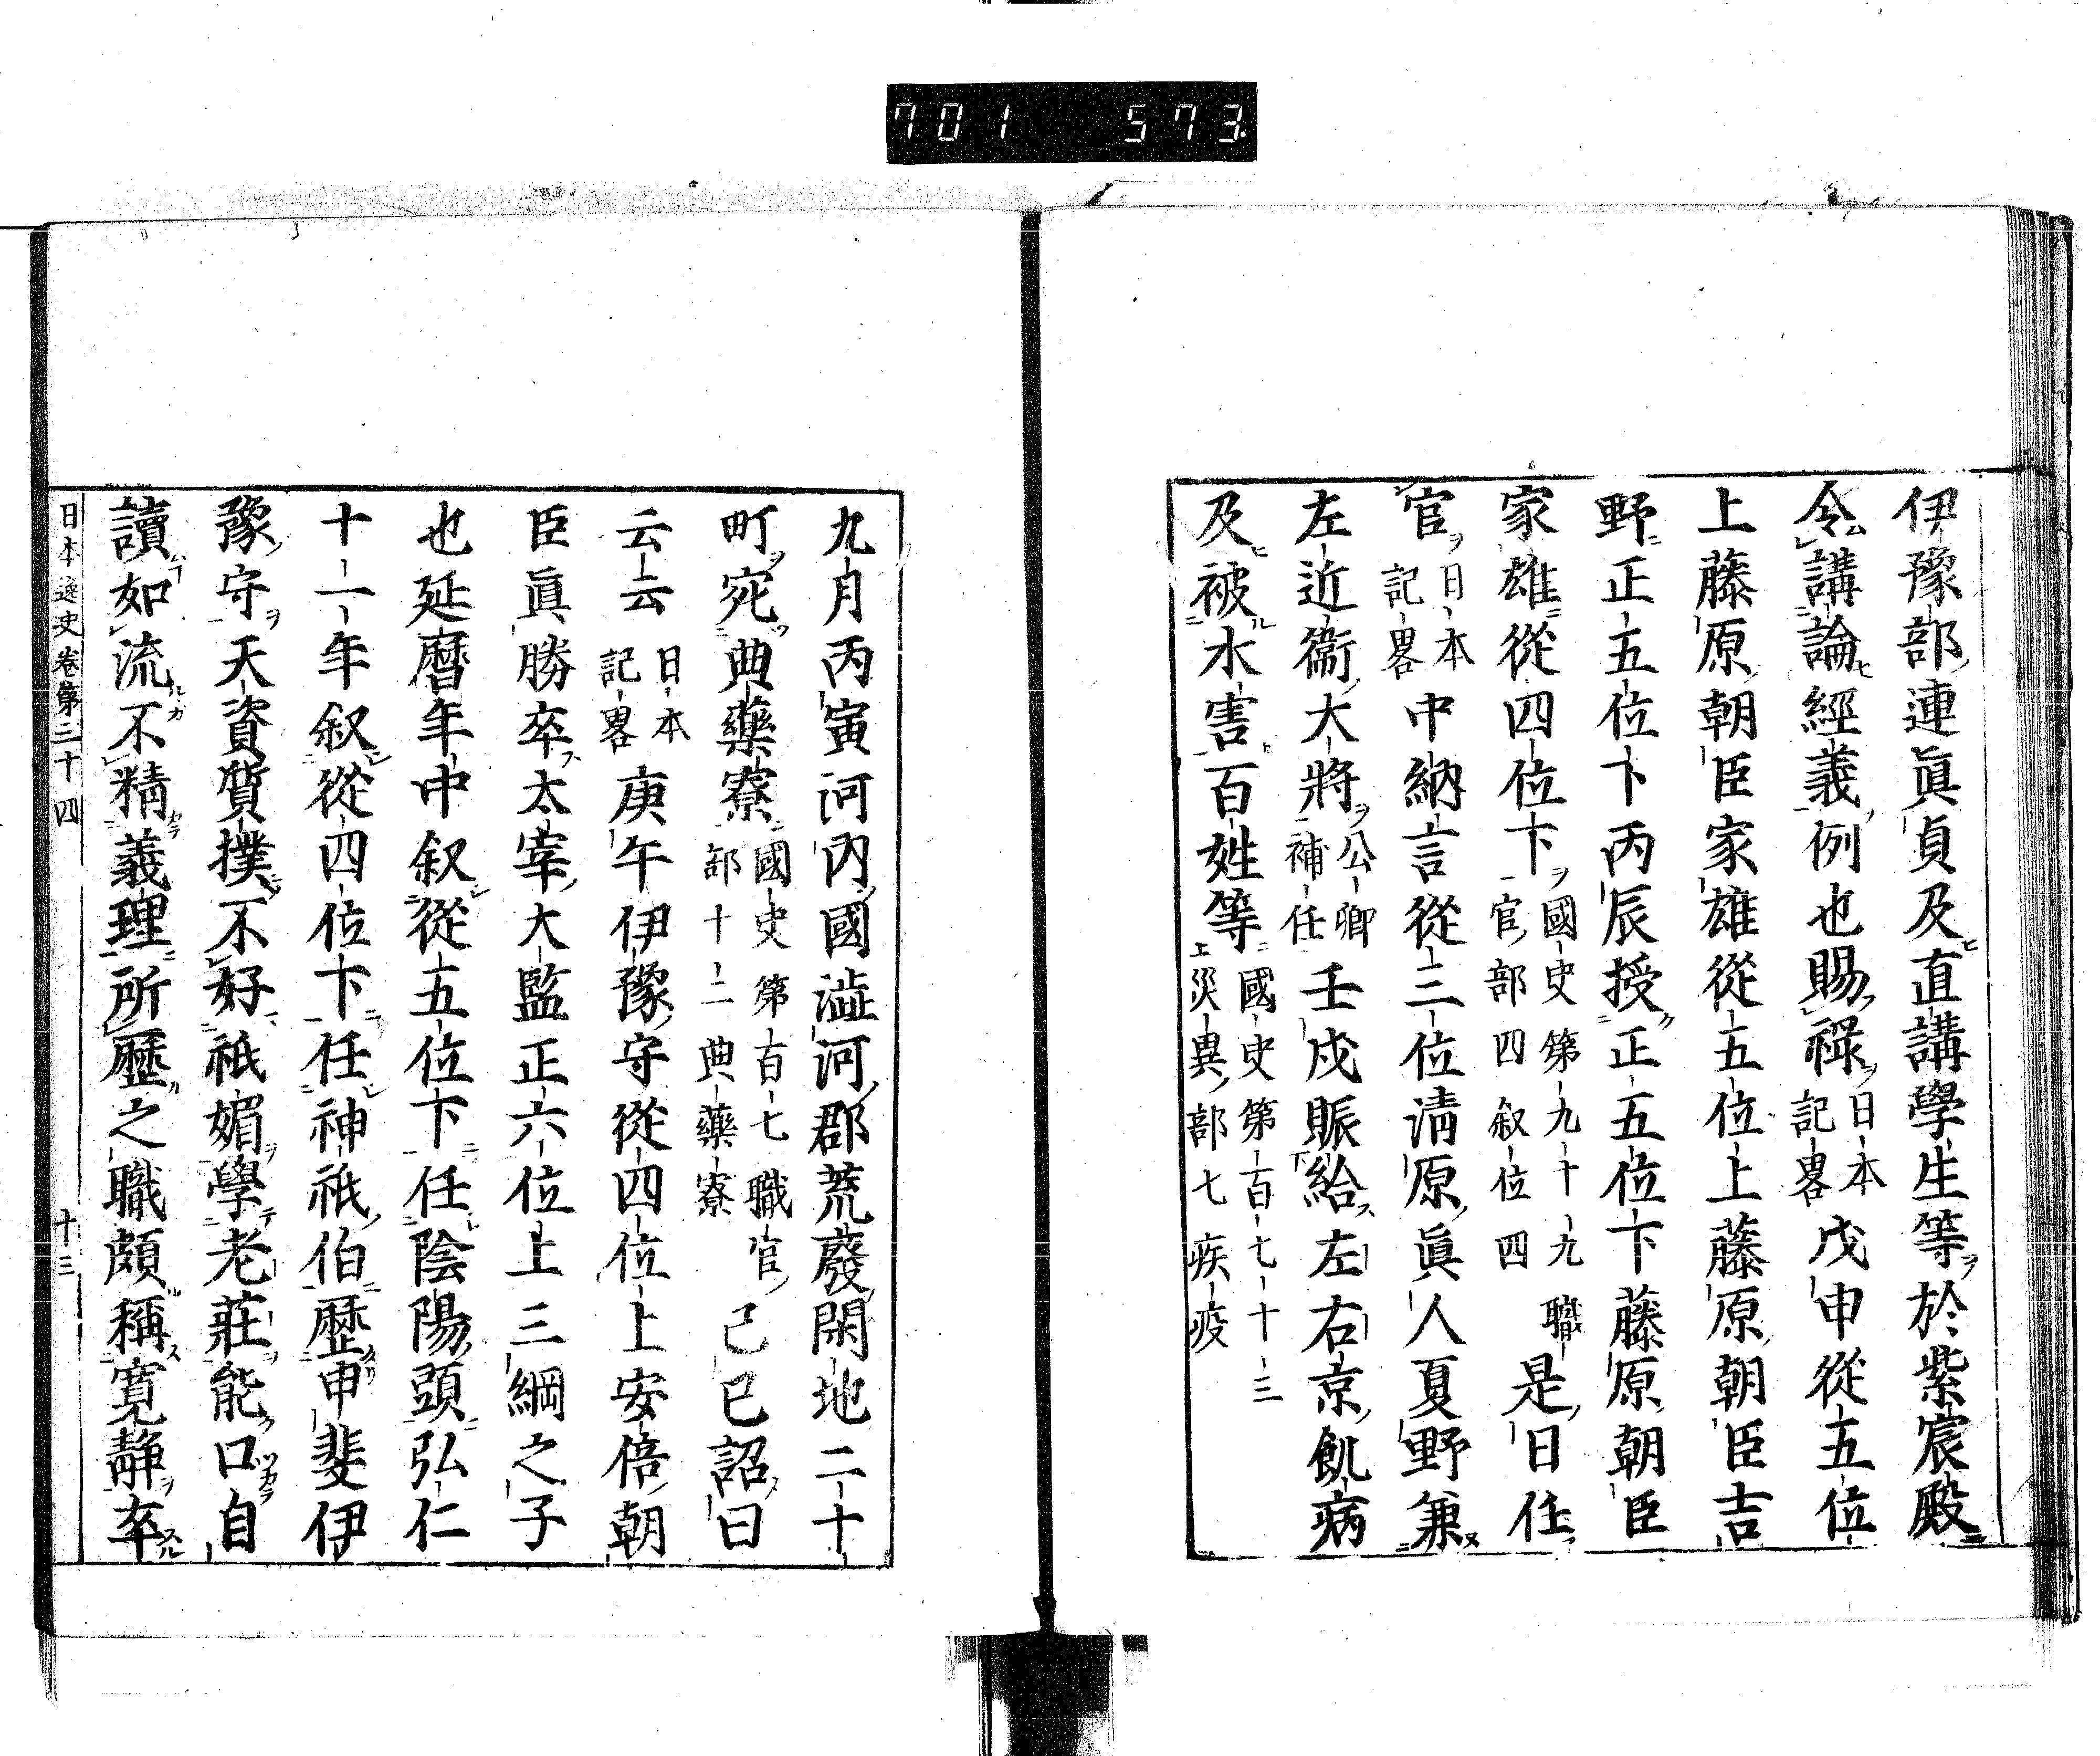 701 573
伊豫部連眞貞及直講學生等於紫宸殿
令講論經義例也賜祿日本記畧戊申從五位
上藤原朝臣家雄從五位上藤原朝臣吉
野正五位下丙辰授正五位下藤原朝臣
家雄從四位下國史第九十九職官部四叙位四是日任
官日本記畧中納言從三位淸原眞人夏野兼
左近衞大將公卿補任壬戌賑給左右京飢病
及被水害百姓等國史第百七十三災異部七疾疫
九月丙寅河內國澁河郡荒廢閑地二十
町宛典藥寮國史第百七職官部十二典藥寮己巳詔曰
云云日本記畧庚午伊豫守從四位上安倍朝
臣眞勝卒太宰大監正六位上三綱之子
也延曆年中叙從五位下任陰陽頭弘仁
十一年叙從四位下任神祇伯歷甲斐伊
豫守天資質撲不好祇媚學老莊能口自
讀如流不精義理所歷之職頗稱寬静卒
日本逸史卷第三十四 十三